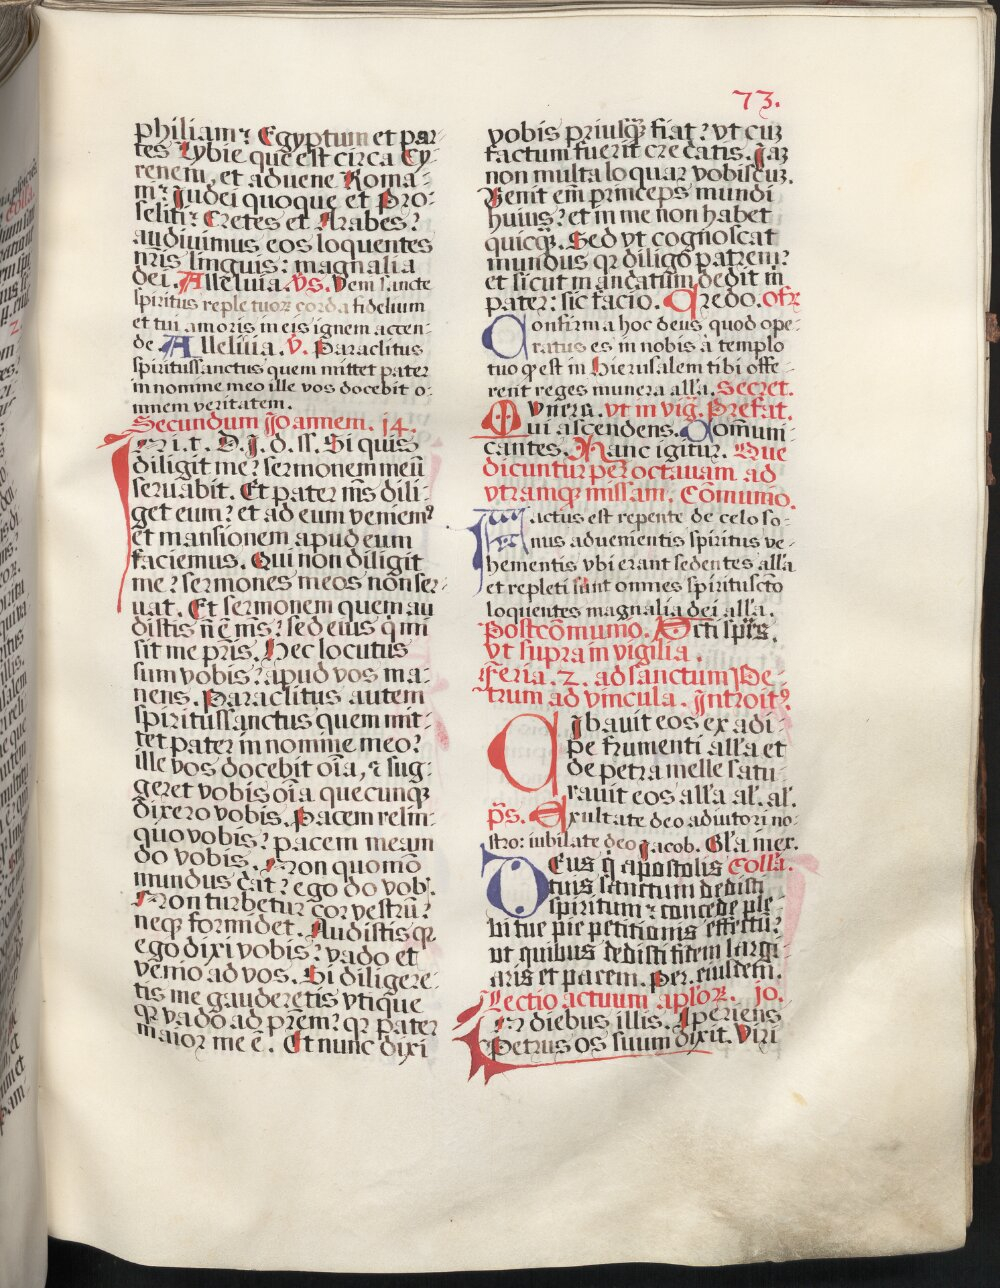 73.
philiam ⁊ Egyptum et par
tes Lybie que est circa Cy-
renem, et aduene Roma-
ni: Judei quoque et Pro-
seliti: Cretes et Arabes:
audiuimus eos loquentes
nr̄is linguis: magnalia
dei. Alleluia. vs. Veni sancte
spiritus reple tuoꝝ corda fidelium
et tui amoris in eis ignem accen-
de. Alleluia. v. Paraclitus
spiritussanctus quem mittet pater
in nomine meo ille vos docebit o-
mnem veritatem.
Secundum Joannem. 14.
In i. t. D. J. d. ss. Si quis
diligit me: sermonem meū
seruabit. Et pater m̄s dili-
get eum: et ad eum veniemꝰ
et mansionem apud eum
faciemus. Qui non diligit
me: sermones meos non ser-
uat. Et sermonem quem au
distis n̄ ē m̄s: sed eius q̇ mi
sit me pr̄is. Hec locutus
sum vobis: apud vos ma-
nens. Paraclitus autem
spiritussanctus quem mit-
tet pater in nomine meo:
ille vos docebit oīa, ⁊ sug-
geret vobis oīa quecunqꝫ
dixero vobis. Pacem relin-
quo vobis: pacem meam
do vobis. Non quomō
mundus dat: ego do vob̄.
Non turbetur cor vestrū:
neqꝫ formidet. Audistis qꝛ
ego dixi vobis: vado et
venio ad vos. Si diligere-
tis me gauderetis vtique
qꝛ vado ad pr̄em: qꝛ pater
maior me ē. Et nunc dixi
vobis priusqꝫ fiat: vt cuꝫ
factum fuerit credatis. Jaꝫ
non multa loquar vobiscuꝫ.
Venit em̄ princeps mundi
huius: et in me non habet
quicqꝫ. Sed vt cognoscat
mundus qꝛ diligo patrem:
et sicut mandatum dedit m̄
pater: sic facio. Credo. Ofꝝ
Confirma hoc deus quod ope-
ratus es in nobis a templo
tuo qḋ est in Hierusalem tibi offe-
rent reges munera all'a. Secret.
Munera. vt in vig̃. Prefat.
Qui ascendens. Comuni-
cantes. Hanc igitur. Que
dicuntur per octauam ad
vtramqꝫ missam. Cōmunio.
Factus est repente de celo so-
nus aduenientis spiritus ve-
hementis vbi erant sedentes all'a
et repleti sunt omnes spiritusctō
loquentes magnalia dei all'a.
Postcōmunio. Scti sp̄us.
vt supra in vigilia.
Feria. 2. ad sanctum Pe-
trum ad vincula. Introitꝰ
Cibauit eos ex adi-
pe frumenti all'a et
de petra melle satu-
rauit eos all'a al'. al'.
ps. Exultate deo adiutori no-
stro: iubilate deo Jacob. Gl'a in ex.
Deus q̇ apostolis Colla.
tuis sanctum dedisti
spiritum: concede ple-
bi tue pie petitionis effectū:
ut quibus dedisti fidem largi-
aris et pacem. Per. eiusdem.
Lectio actuum apl'oꝝ. 10.
In diebus illis. Aperiens
Petrus os suum dixit. Viri